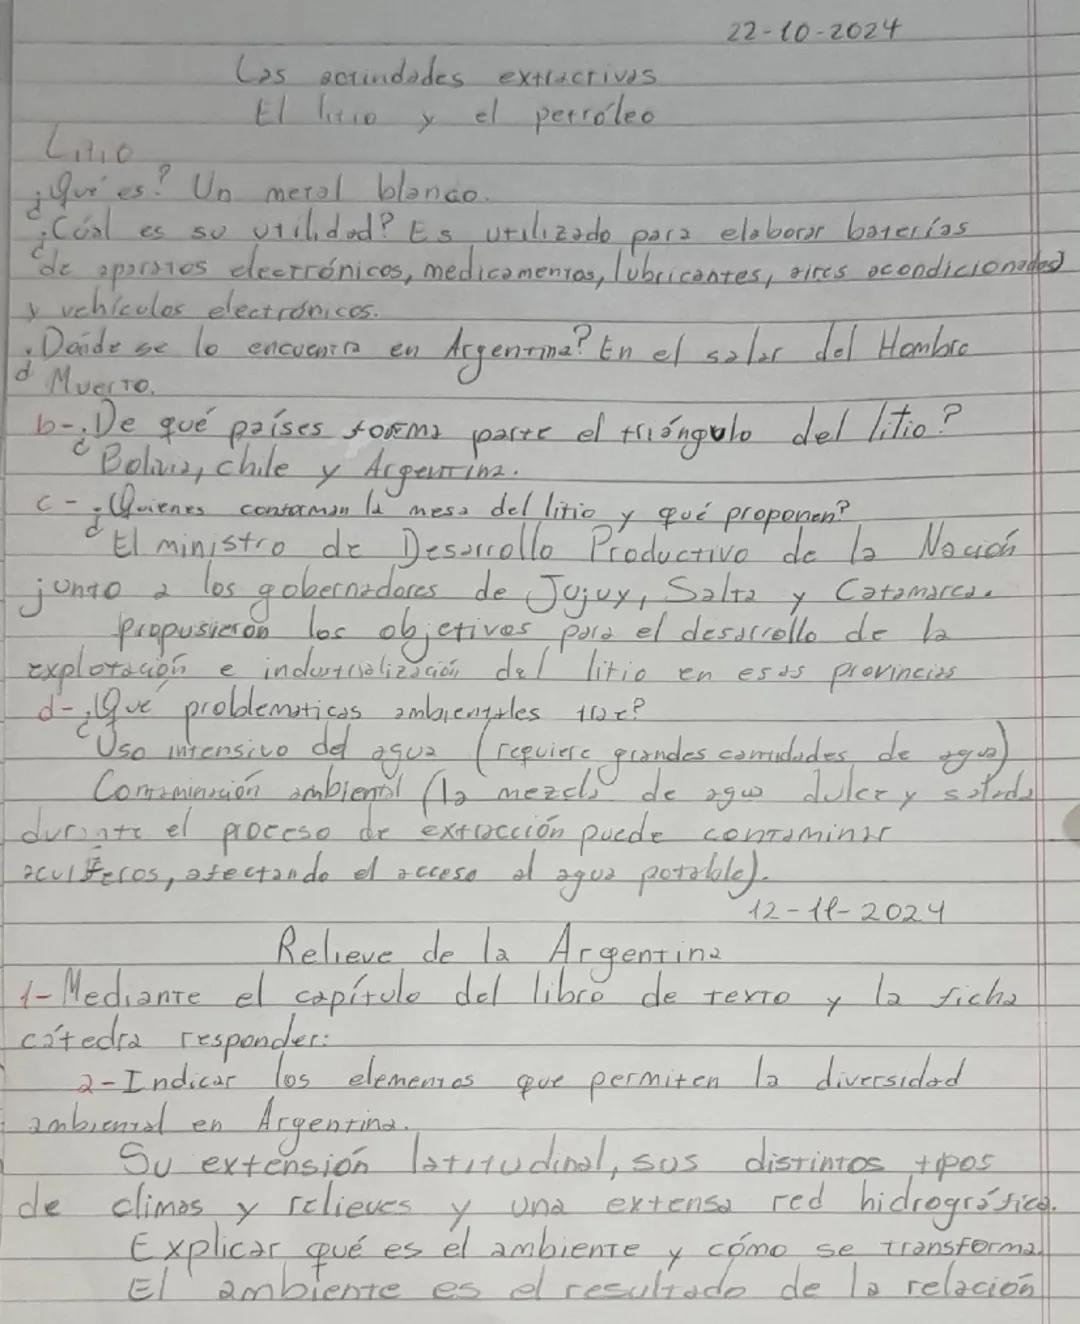 22-10-2024
Las actividades extractivas
El litio y el petróleo
Litio
¿Qué es? Un metal blanco.
¿Cúal es su utilidad? Es utilizado para elaborar baterías
de aparatos electrónicos, medicamentos, lubricantes, aires acondicionados
y vehículos electrónicos.
¿Dónde se lo encuentra en Argentina? En el salar del Hombre
Muerto.
b-¿De qué países forma parte el triángulo del litio?
Bolivia, Chile y Argentina.
c-¿Quienes conforman la mesa del litio y qué proponen?
El ministro de Desarrollo Productivo de la Nación
junto a los gobernadores de Jujuy, Salta y Catamarca.
Propusieron los objetivos para el desarrollo de la
explotación e industrialización del litio en esas provincias
d-¿Qué problematicas ambientales trae?
Uso intensivo del agua (requiere grandes cantidades de agua)
Contaminación ambiental (la mezcla de agua dulce y salada
durante el proceso de extracción puede contaminar
acuíferos, afectando el acceso al agua potable).
12-11-2024
Relieve de la Argentina
1-Mediante el capítulo del libro de texto y la ficha
cátedra responder:
2-Indicar los elementos que permiten la diversidad
ambiental en Argentina.
Su extensión latitudinal, sus distintos tipos
de climas y relieves y una extensa red hidrográfica.
Explicar qué es el ambiente y cómo se transforma.
El ambiente es el resultado de la relación